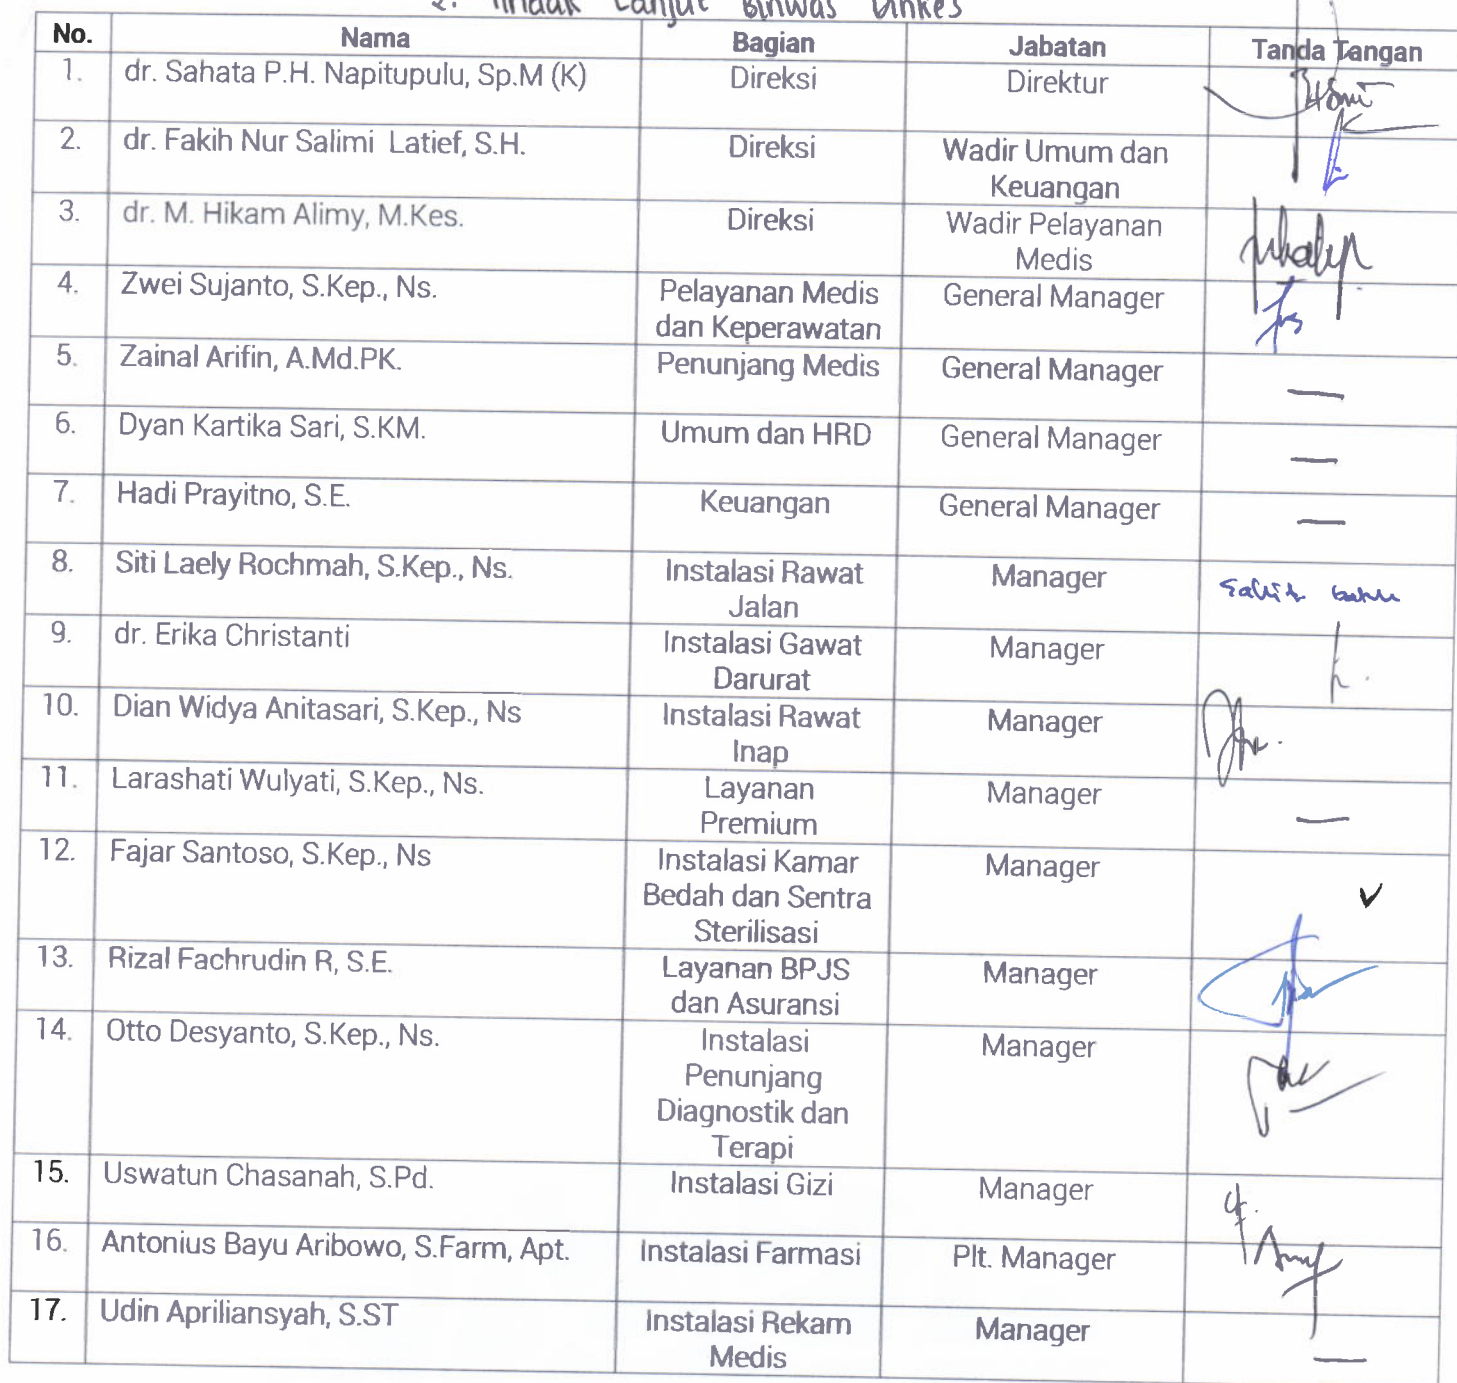 2. Tindak Lanjut Binwas Dinkes
No. Nama Bagian Jabatan Tanda Tangan
1. dr. Sahata P.H. Napitupulu, Sp.M (K) Direksi Direktur
2. dr. Fakih Nur Salimi Latief, S.H. Direksi Wadir Umum dan
Keuangan
3. dr. M. Hikam Alimy, M.Kes. Direksi Wadir Pelayanan
Medis
4. Zwei Sujanto, S.Kep., Ns. Pelayanan Medis General Manager
dan Keperawatan
5. Zainal Arifin, A.Md.PK. Penunjang Medis General Manager —
6. Dyan Kartika Sari, S.KM. Umum dan HRD General Manager —
7. Hadi Prayitno, S.E. Keuangan General Manager —
8. Siti Laely Rochmah, S.Kep., Ns. Instalasi Rawat Manager
Jalan
9. dr. Erika Christanti Instalasi Gawat Manager
Darurat
10. Dian Widya Anitasari, S.Kep., Ns Instalasi Rawat Manager
Inap
11. Larashati Wulyati, S.Kep., Ns. Layanan Manager —
Premium
12. Fajar Santoso, S.Kep., Ns Instalasi Kamar Manager ✓
Bedah dan Sentra
Sterilisasi
13. Rizal Fachrudin R, S.E. Layanan BPJS Manager
dan Asuransi
14. Otto Desyanto, S.Kep., Ns. Instalasi Manager
Penunjang
Diagnostik dan
Terapi
15. Uswatun Chasanah, S.Pd. Instalasi Gizi Manager
16. Antonius Bayu Aribowo, S.Farm, Apt. Instalasi Farmasi Plt. Manager
17. Udin Apriliansyah, S.ST Instalasi Rekam Manager —
Medis